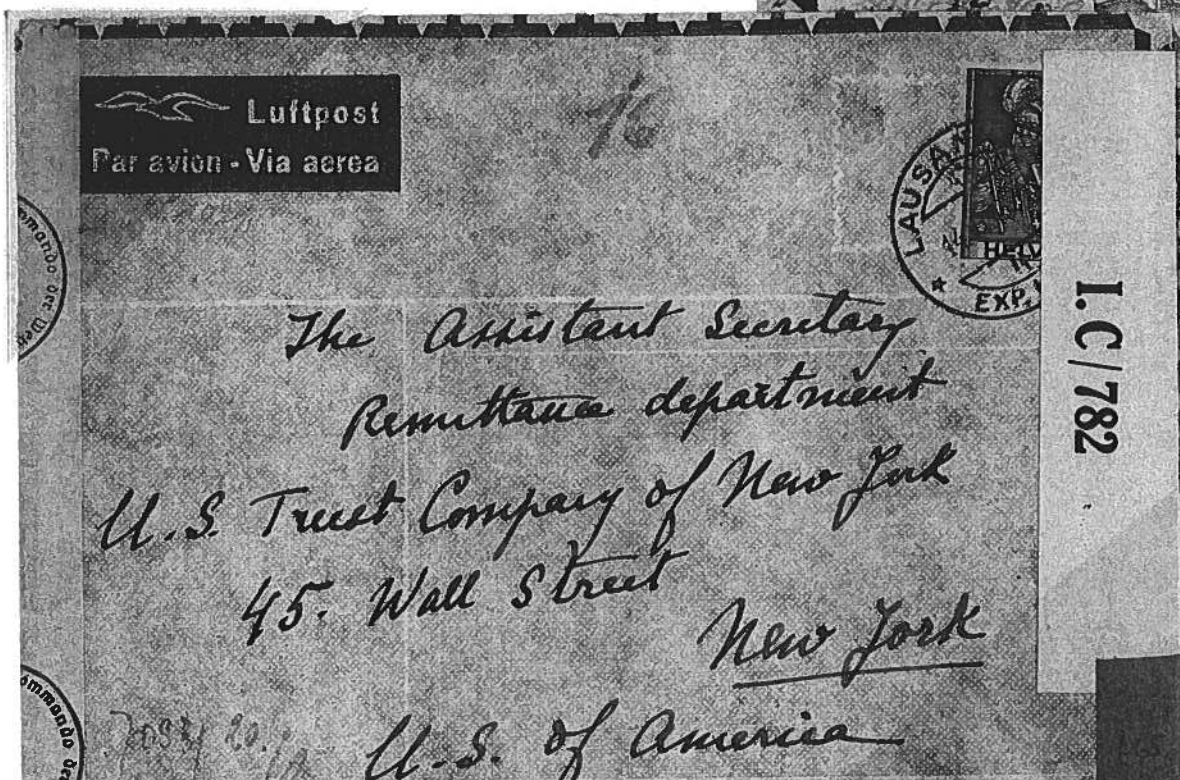 Luftpost
Par avion - Via aerea
LAUSA
HELV
EXP.
I.C/782
The Assistant Secretary
Remittance department
U.S. Trust Company of New York
45. Wall Street
New York
U.S. of America
mmando der
ommando der